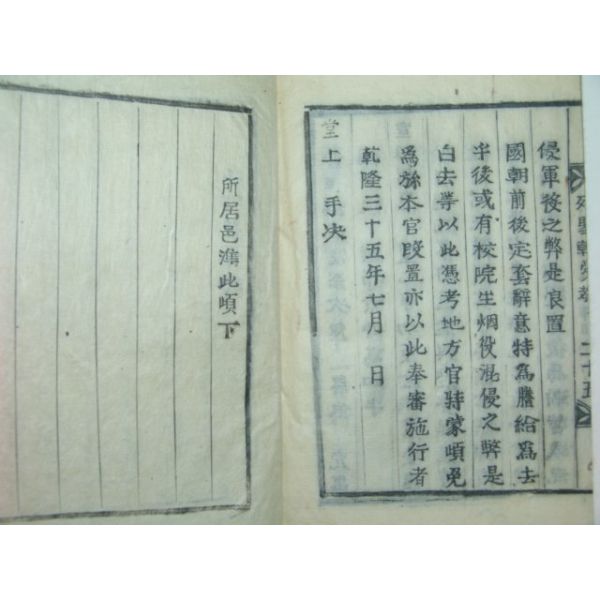 侵軍役之弊是良置
國朝前後定套辭意特為謄給為去
乎後或有校院生烟役混侵之弊是
白去等以此憑考地方官特蒙頉免
為旀本官段置亦以此奉審施行者
乾隆三十五年七月 日
堂上 手决
所居邑準此頉下
二十五